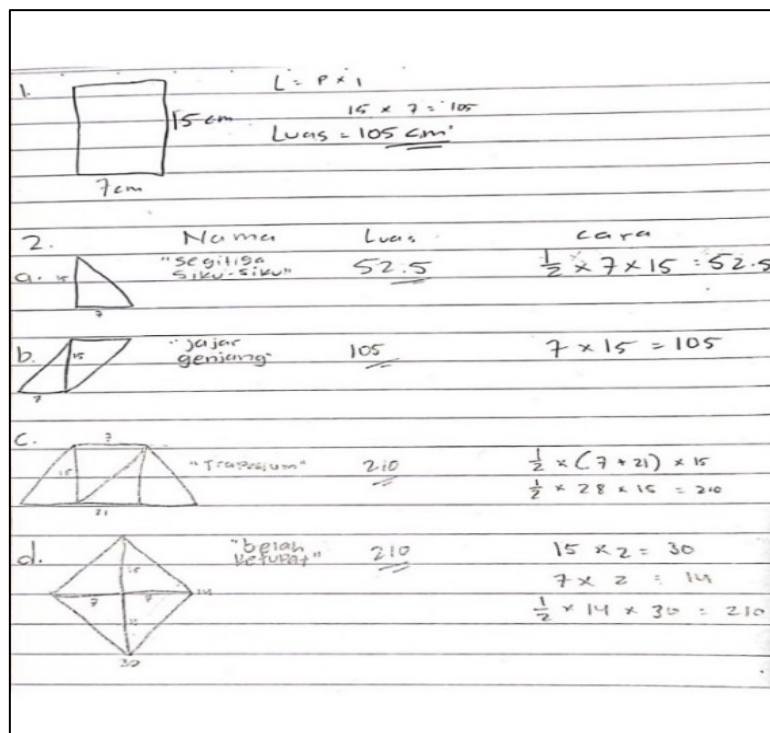 1.
L = P × l
15 cm
15 × 7 = 105
Luas = 105 cm²
7 cm
2. Nama Luas cara
a. 15 7 "segitiga siku-siku" 52.5 1/2 × 7 × 15 = 52.5
b. 15 7 "jajar genjang" 105 7 × 15 = 105
c. 7 15 21 "Trapesium" 210 1/2 × (7 + 21) × 15
1/2 × 28 × 15 = 210
d. 15 7 7 14 30 "belah ketupat" 210 15 × 2 = 30
7 × 2 = 14
1/2 × 14 × 30 = 210